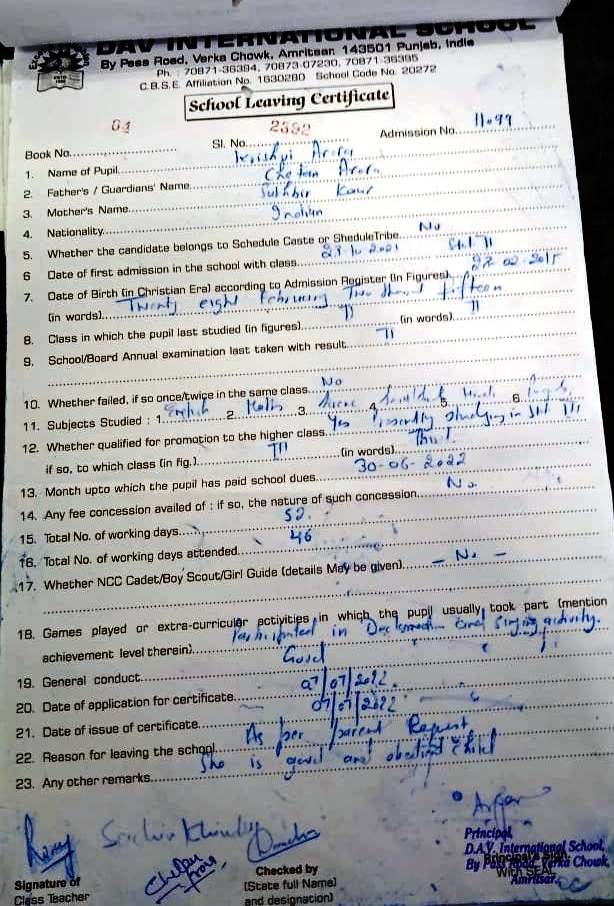 DAV INTERNATIONAL SCHOOL
By Pass Road, Verka Chowk, Amritsar. 143501 Punjab, India
Ph. : 70871-36394, 70873-07230, 70871-36395
C.B.S.E. Affiliation No. 1630280 School Code No. 20272
School Leaving Certificate
Book No. 64 Sl. No. 2392 Admission No. 11099
1. Name of Pupil Arora
2. Father's / Guardians' Name Chetan Arora
3. Mother's Name Sukhbir Kaur
4. Nationality Indian
5. Whether the candidate belongs to Schedule Caste or SheduleTribe No
6 Date of first admission in the school with class 2021 Std II
7. Date of Birth (in Christian Era) according to Admission Register (In Figures) 02-2015
(in words) Twenty eight February Two thousand fifteen
8. Class in which the pupil last studied (in figures) II (in words) II
9. School/Board Annual examination last taken with result II
10. Whether failed, if so once/twice in the same class No
11. Subjects Studied : 1. English 2. Maths 3. 4. 5. 6.
12. Whether qualified for promotion to the higher class Yes Presently studying in Std III
if so, to which class (in fig.) III (in words) Third
13. Month upto which the pupil has paid school dues 30-06-2022
14. Any fee concession availed of : if so, the nature of such concession No
15. Total No. of working days 52
16. Total No. of working days attended 46
17. Whether NCC Cadet/Boy Scout/Girl Guide (details May be given) - No -
18. Games played or extra-curricular activities in which the pupil usually took part (mention
achievement level therein) Participated in and singing activity.
19. General conduct Good
20. Date of application for certificate 07/07/2022
21. Date of issue of certificate 07/07/2022
22. Reason for leaving the school As per parent Request
23. Any other remarks She is good and obedient child
Signature of
Class Teacher
Checked by
(State full Name)
and designation)
Principal,
D.A.V. International School,
By Pass Road, Verka Chowk,
Amritsar.
Principal's Sign.
With SEAL